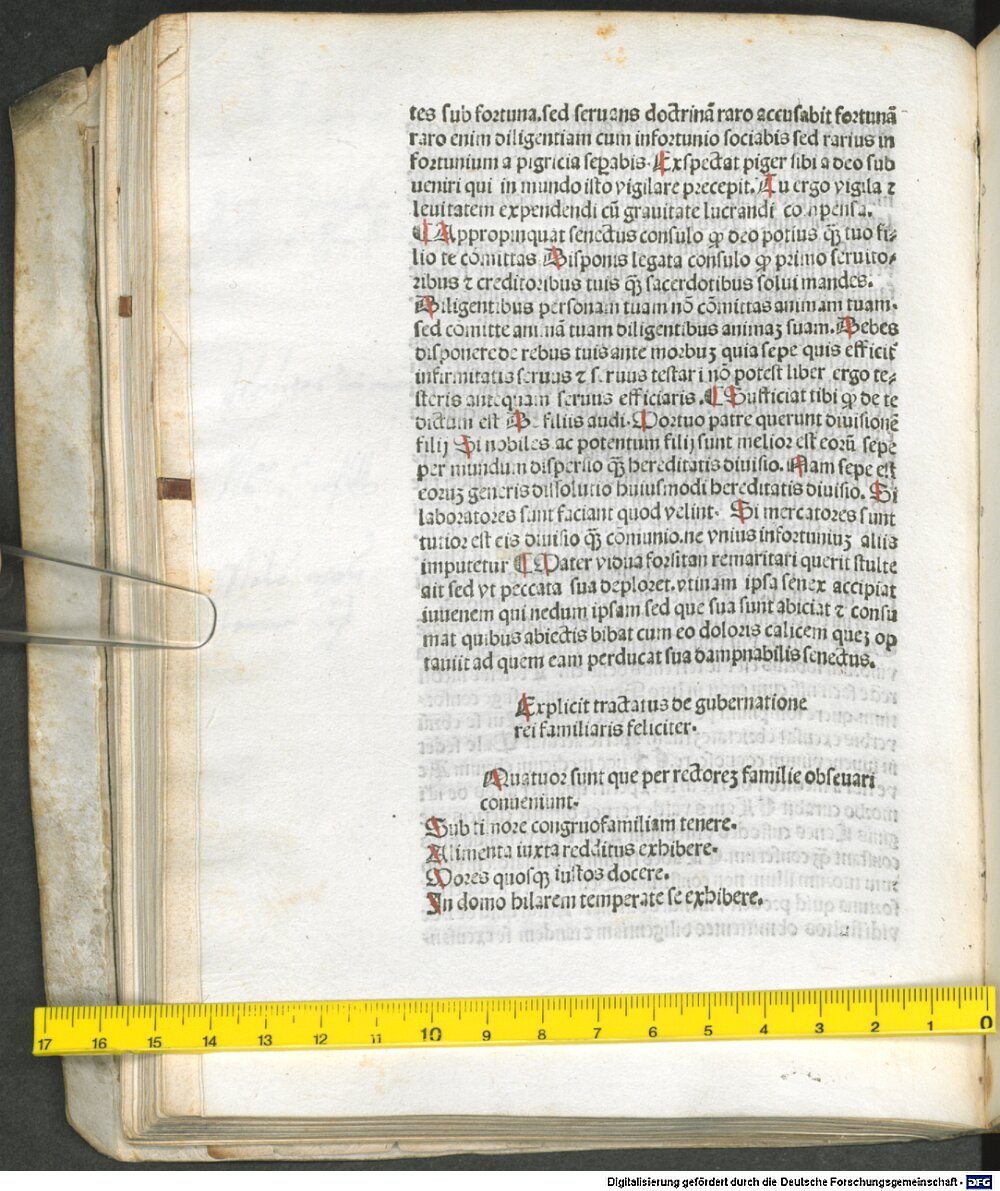 tes sub fortuna.sed seruans doctrinã raro accusabit fortunã
raro enim diligentiam cum infortunio sociabis sed rarius in
fortunium a pigricia seꝑabis. Exspectat piger sibi a deo sub
ueniri qui in mundo isto vigilare precepit. Tu ergo vigila ⁊
leuitatem expendendi cũ grauitate lucrandi conpensa.
¶ Appropinquat senectus consulo ꝙ deo potius q̃ꝫ tuo fi⸗
lio te cõmittas. Disponis legata consulo ꝙ primo seruito⸗
ribus ⁊ creditoribus tuis q̃ꝫ sacerdotibus solui mandes.
Diligentibus personam tuam nõ cõmittas animam tuam.
sed cõmitte animã tuam diligentibus animaꝫ suam. Debes
disponere de rebus tuis ante morbuꝫ quia sepe quis efficit᷑
infirmitatis seruus ⁊ seruus testari nõ potest liber ergo te⸗
steris antequam seruus efficiaris. ¶ Sufficiat tibi ꝙ de te
dictum est De filiis audi. Mortuo patre querunt diuisionẽ
filij Si nobiles ac potentum filij sunt melior est eorũ sepe
per mundum dispersio q̃ꝫ hereditatis diuisio. Nam sepe est
eoruꝫ generis dissolutio huiusmodi hereditatis diuisio. Si
laboratores sunt faciant quod velint. Si mercatores sunt
tutior est eis diuisio q̃ꝫ cõmunio.ne vnius infortuniuꝫ aliis
imputetur ¶ Mater vidua forsitan remaritari querit stulte
ait sed vt peccata sua deploret.vtinam ipsa senex accipiat
iuuenem qui nedum ipsam sed que sua sunt abiciat ⁊ consu
mat quibus abiectis bibat cum eo doloris calicem queꝫ op
tauit ad quem eam perducat sua dampnabilis senectus.
Explicit tractatus de gubernatione
rei familiaris feliciter.
Quatuor sunt que per rectoreꝫ familie obseuari
conueniunt.
Sub timore congruo familiam tenere.
Alimenta iuxta redditus exhibere.
Mores quosqꝫ iustos docere.
In domo hilarem temperate se exhibere.
17 16 15 14 13 12 11 10 9 8 7 6 5 4 3 2 1 0
Digitalisierung gefördert durch die Deutsche Forschungsgemeinschaft - DFG